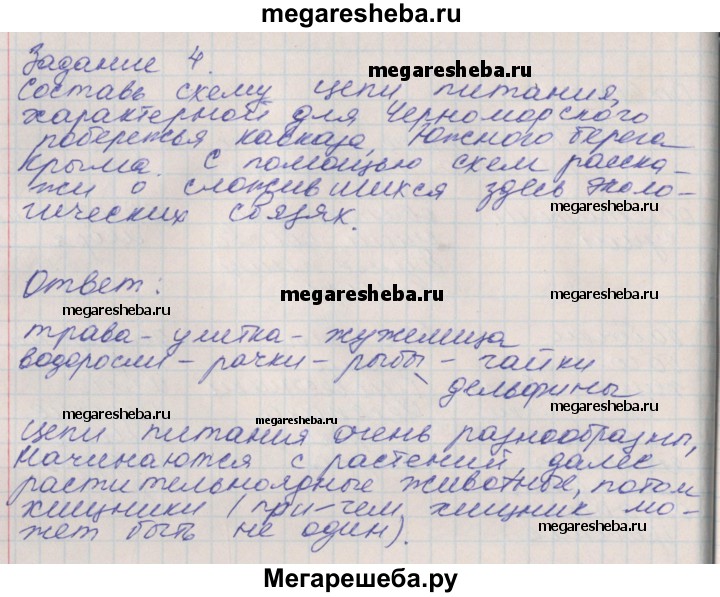 megaresheba.ru
Задание 4.
megaresheba.ru
Составь схему цепи питания,
характерной для Черноморского
побережья Кавказа, Южного берега
Крыма. С помощью схем расска-
жи о сложившихся здесь эколо-
гических связях.
megaresheba.ru
Ответ:
megaresheba.ru
megaresheba.ru
megaresheba.ru
трава - улитка - жужелица
водоросли - рачки - рыбы - чайки
дельфины
megaresheba.ru
megaresheba.ru
megaresheba.ru
Цепи питания очень разнообразны,
начинаются с растений, далее
растительноядные животные, потом
хищники (при-чем хищник мо-
жет быть не один).
megaresheba.ru
megaresheba.ru
Мегарешеба.ру